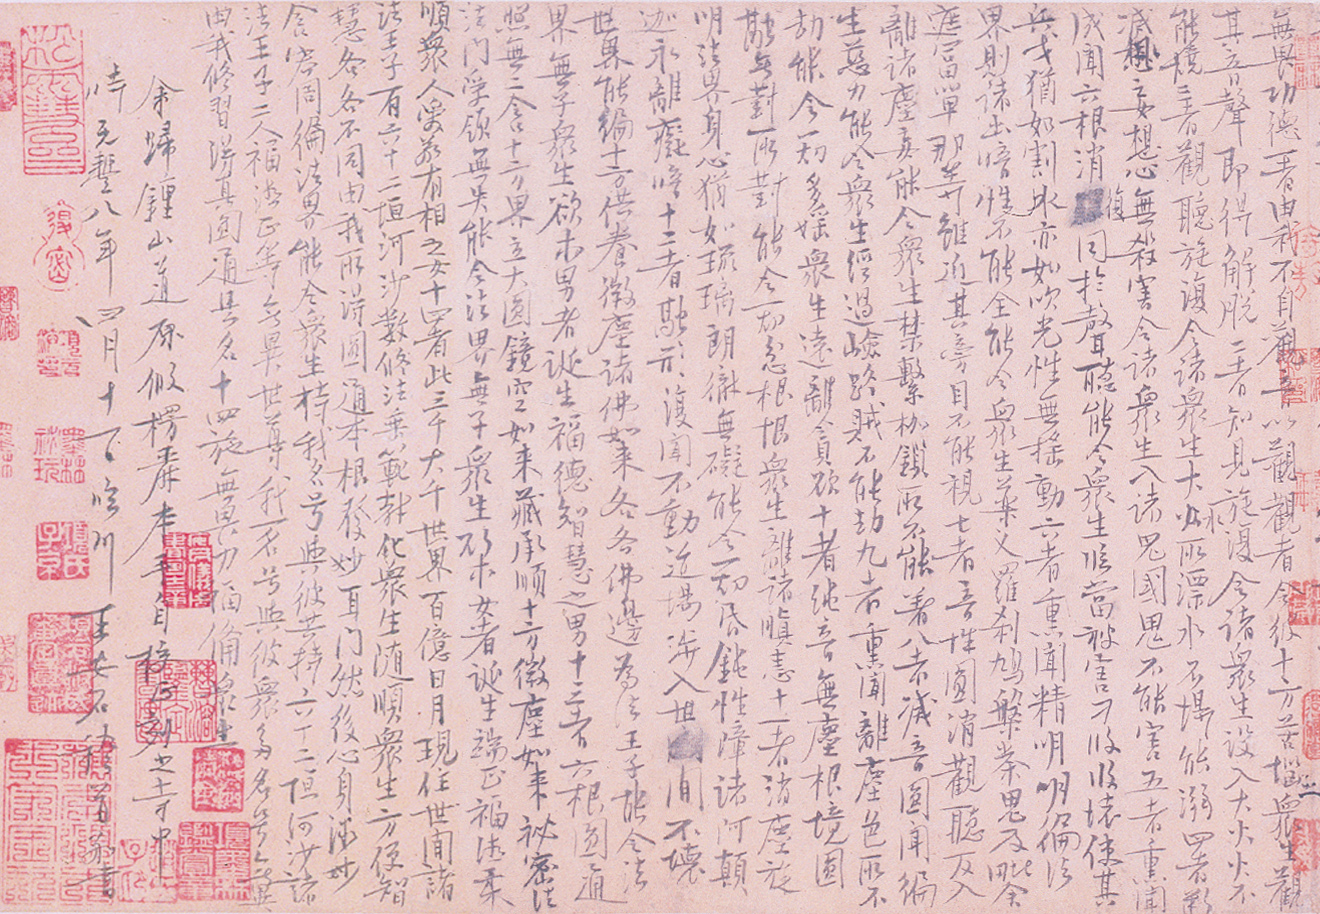 無畏功德一者由我不自觀音以觀觀者令彼十方苦惱眾生觀
其音聲即得解脫二者知見旋復令諸眾生設入大火火不
能燒三者觀聽旋復令諸眾生大水所漂水不能溺四者斷
滅妄想心無殺害令諸眾生入諸鬼國鬼不能害五者熏聞
成聞六根消復同於聲聽能令眾生臨當被害刀段段壞使其
兵戈猶如割水亦如吹光性無搖動六者熏聞精明明徧法
界則諸幽暗性不能全能令眾生藥叉羅剎鳩槃茶鬼及毗舍
遮富單那等雖近其旁目不能視七者音性圓消觀聽反入
離諸塵妄能令眾生禁繫枷鎖所不能著八者滅音圓聞徧
生慈力能令眾生經過嶮路賊不能劫九者熏聞離塵色所不
劫能令一切多婬眾生遠離貪欲十者純音無塵根境圓
融無對所對能令一切忿恨眾生離諸瞋恚十一者消塵旋
明法界身心猶如琉璃朗徹無礙能令一切昏鈍性障諸阿顛
迦永離癡暗十二者融形復聞不動道場涉入世間不壞
世界能徧十方供養微塵諸佛如來各各佛邊為法王子能令法
界無子眾生欲求男者誕生福德智慧之男十三者六根圓通
照無二含十方界立大圓鏡空如來藏承順十方微塵如來祕密法
法門受領無失能令法界無子眾生欲求女者誕生端正福德柔
順眾人愛敬有相之女十四者此三千大千世界百億日月現住世間諸
法王子有六十二恒河沙數修法垂範教化眾生隨順眾生方便智
慧各各不同由我所得圓通本根發妙耳門然後心身微妙
含容周徧法界能令眾生持我名号與彼共持六十二恒河沙諸
法王子二人福德正等無異世尊我一名号與彼眾多名号無異
由我修習得真圓通是名十四施無畏力福備眾生
余歸鍾山道原假楞嚴本手自校正刻之寺中
時元豐八年四月十一日臨川王安石稽首敬書